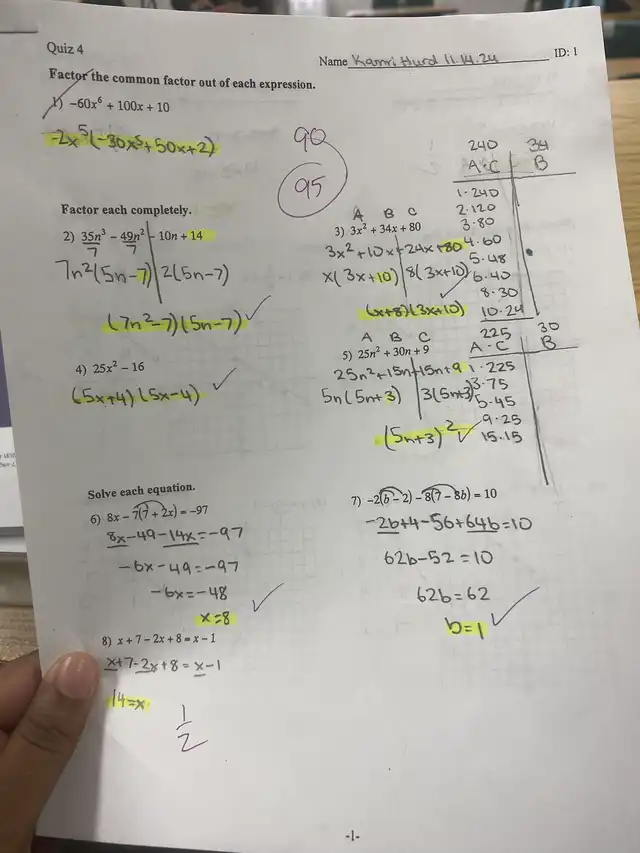 Quiz 4
Name Kamri Hurd 11.14.24 ID: 1
Factor the common factor out of each expression.
1) -60x⁶ + 100x + 10
-2x⁵(-30x⁵+50x+2)
90
95
Factor each completely.
2) 35n³ - 49n² - 10n + 14
7 7
7n²(5n-7) 2(5n-7)
(7n²-7)(5n-7)
A B C
3) 3x² + 34x + 80
3x²+10x+24x+80
x(3x+10) 8(3x+10)
(x+8)(3x+10)
240 34
A·C B
1·240
2·120
3·80
4·60
5·48
6·40
8·30
10·24
4) 25x² - 16
(5x+4)(5x-4)
A B C
5) 25n² + 30n + 9
25n²+15n+15n+9
5n(5n+3) 3(5n+3)
(5n+3)²
225 30
A·C B
1·225
3·75
5·45
9·25
15·15
Solve each equation.
6) 8x - 7(7 + 2x) = -97
8x-49-14x=-97
-6x-49=-97
-6x=-48
x=8
7) -2(b - 2) - 8(7 - 8b) = 10
-2b+4-56+64b=10
62b-52=10
62b=62
b=1
8) x + 7 - 2x + 8 = x - 1
x+7-2x+8=x-1
14=x
1
2
-1-